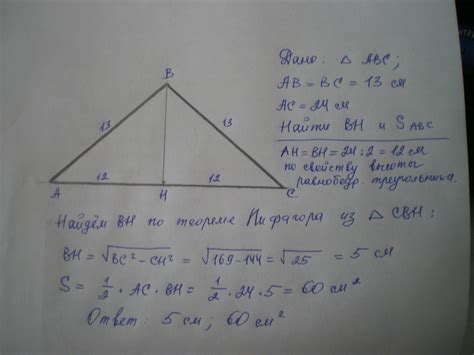 B
Дано: △ ABC;
AB = BC = 13 см
AC = 24 см
Найти BH и S ABC
13
13
AH = BH = 24 : 2 = 12 см
по свойству высоты
равнобедр. треугольника.
12
12
A
H
C
Найдём BH по теореме Пифагора из △ CBH:
BH = √BC² – CH² = √169 – 144 = √25 = 5 см
S = 1/2 · AC · BH = 1/2 · 24 · 5 = 60 см²
Ответ: 5 см; 60 см²